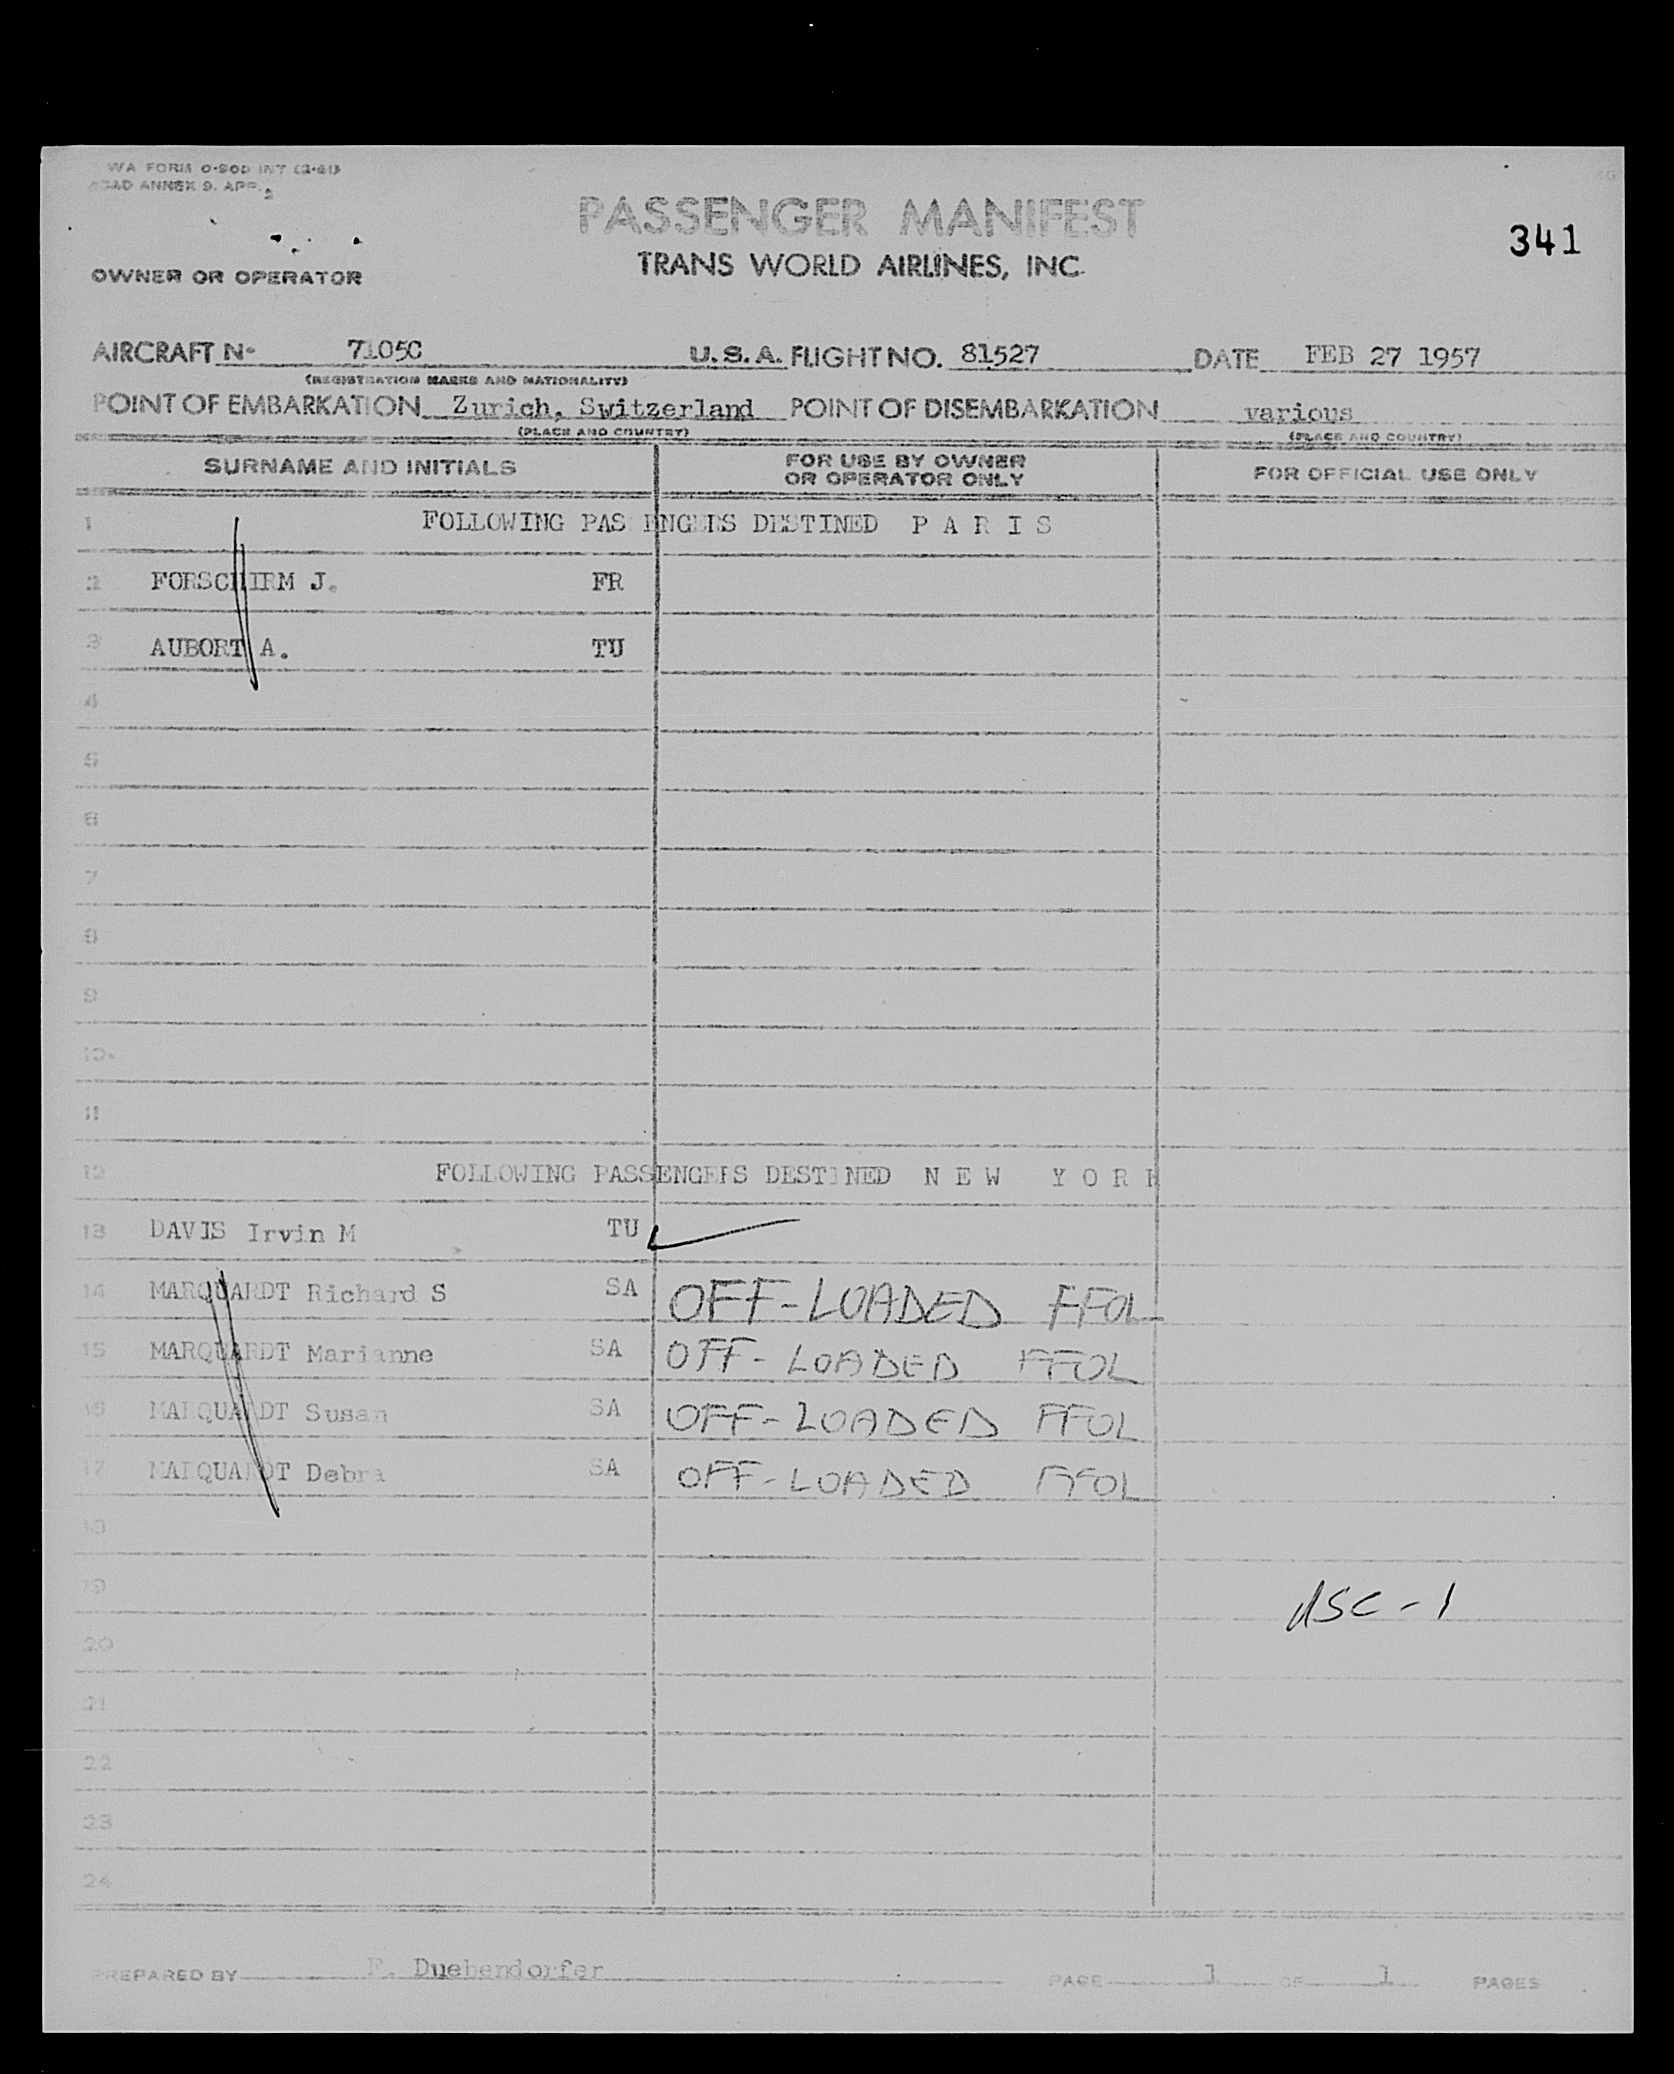 WA FORM O-90D INT (2-61)
ANNEX 9. APP. 2
PASSENGER MANIFEST
341
TRANS WORLD AIRLINES, INC.
OWNER OR OPERATOR
AIRCRAFT No 7105C U.S.A. FLIGHT NO. 81527 DATE FEB 27 1957
(REGISTRATION MARKS AND NATIONALITY)
POINT OF EMBARKATION Zurich, Switzerland POINT OF DISEMBARKATION various
(PLACE AND COUNTRY) (PLACE AND COUNTRY)
SURNAME AND INITIALS FOR USE BY OWNER OR OPERATOR ONLY FOR OFFICIAL USE ONLY
1 FOLLOWING PASSENGERS DESTINED P A R I S
2 FORSCHIRM J. FR
3 AUBORT A. TU
4
5
6
7
8
9
10
11
12 FOLLOWING PASSENGERS DESTINED N E W Y O R K
13 DAVIS Irvin M TU
14 MARQUARDT Richard S SA OFF-LOADED FFOL
15 MARQUARDT Marianne SA OFF-LOADED FFOL
16 MARQUARDT Susan SA OFF-LOADED FFOL
17 MARQUARDT Debra SA OFF-LOADED FFOL
18
19 USC-1
20
21
22
23
24
PREPARED BY F. Duebendorfer PAGE 1 OF 1 PAGES